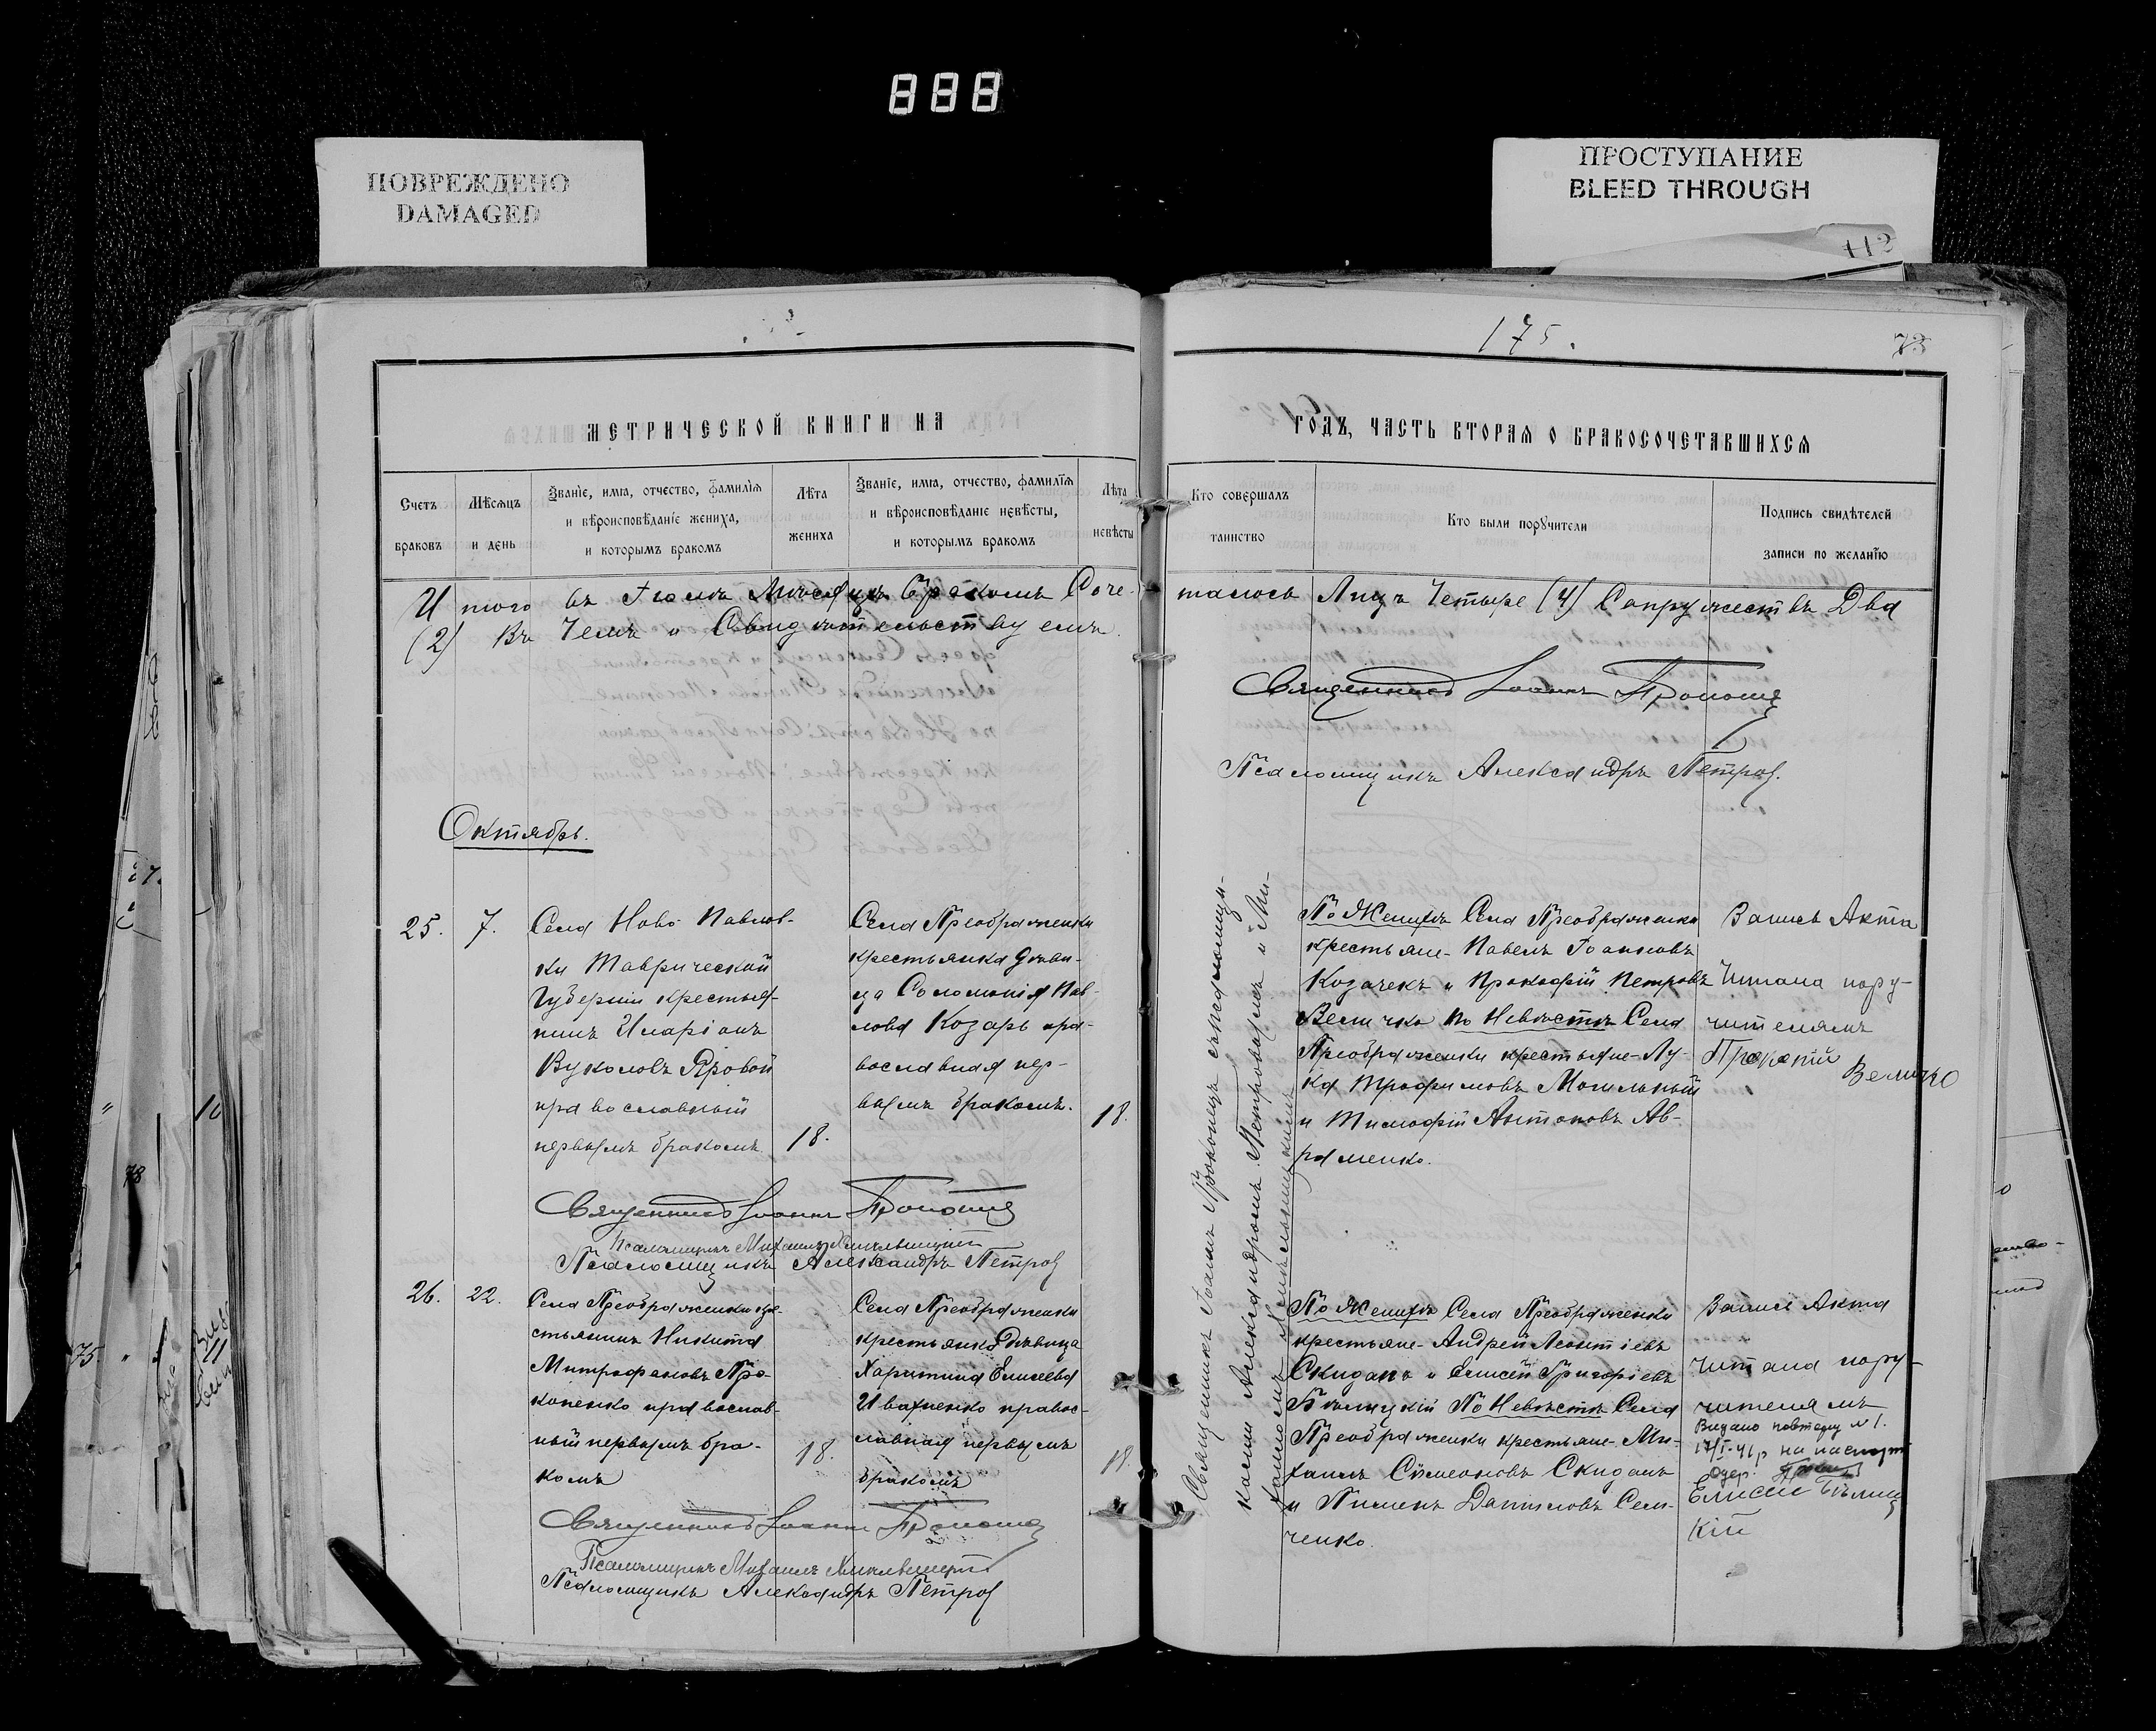 888
ПОВРЕЖДЕНО
DAMAGED
ПРОСТУПАНИЕ
BLEED THROUGH
112
175.
73
МЕТРИЧЕСКОЙ КНИГИ НА
ГОДЪ, ЧАСТЬ ВТОРАЯ О БРАКОСОЧЕТАВШИХСЯ
Счетъ браковъ
Мѣсяцъ и день
Званіе, имя, отчество, фамилія
и вѣроисповѣданіе жениха,
и которымъ бракомъ
Лѣта жениха
Званіе, имя, отчество, фамилія
и вѣроисповѣданіе невѣсты,
и которымъ бракомъ
Лѣта невѣсты
Кто совершалъ таинство
Кто были поручители
Подпись свидѣтелей
записи по желанію
Итого въ Іюлѣ Мѣсяцѣ Бракомъ Соче-
талось Лицъ Четыре (4) Супружествъ Два
(2) Въ Чемъ и Свидѣтельствуемъ.
Священникъ Іоаннъ
Псаломщикъ Александръ Петровъ.
Октябрь.
25.
7.
Села Ново Павлов-
ки Таврической
Губерніи крестья-
нинъ Иларіонъ
Вуколовъ Яровой
православный
первымъ бракомъ
18.
Села Преображенки
крестьянка дѣви-
ца Соломонія Пав-
лова Козарь пра-
вославная пер-
вымъ бракомъ.
18.
Священникъ Іоаннъ
Псаломщикъ Михаилъ
Псаломщикъ Александръ Петровъ
По Женихѣ Села Преображенки
крестьяне Павелъ Іоанновъ
Козачекъ и Прокофій Петровъ
Величко По Невѣстѣ Села
Преображенки крестьяне Лу-
ка Трофимовъ Могильный
и Тимофій Антоновъ Ав-
раменко.
Запись Акта
Читана пору-
чителямъ
Величко
Священникъ Іоаннъ
Александромъ Петровымъ и Ми-
хаиломъ
26.
22.
Села Преображенки кре-
стьянинъ Никита
Митрофановъ Про-
копенко православ-
ный первымъ бра-
комъ
18.
Села Преображенки
крестьянка Дѣвица
Харитина Елисеева
Ивахненко правос-
лавная первымъ
бракомъ
18.
Священникъ Іоаннъ
Псаломщикъ Михаилъ
Псаломщикъ Александръ Петровъ
По Женихѣ Села Преображенки
крестьяне Андрей Леонтіевъ
Скиданъ и Елисей Григоріевъ
Бѣлицкій По Невѣстѣ Села
Преображенки крестьяне Ми-
хаилъ Симеоновъ Скиданъ
и Пименъ Даниловъ Сем-
ченко.
Запись Акта
читана пору-
чителямъ
Видано повторну № 1.
17/I-41р на паспорт
Одер.
Елисей Бѣлиц
кій